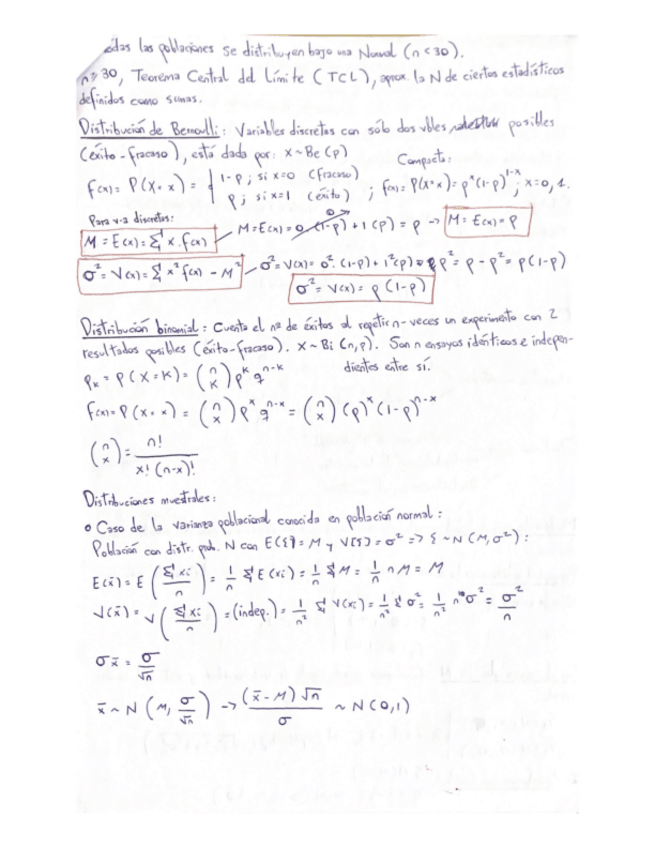 odas las poblaciones se distribuyen bajo una Normal (n < 30).
n ≥ 30, Teorema Central del Límite (TCL), aprox. la N de ciertos estadísticos
definidos como sumas.
Distribución de Bernoulli: Variables discretas con sólo dos vbles posibles
(éxito-fracaso), está dada por: X ~ Be (p) Compacta:
f(x) = P(X = x) = { 1-p ; si x=0 (fracaso)
p ; si x=1 (éxito) ; f(x) = P(X=x) = p^x (1-p)^{1-x} ; x=0,1.
Para v.a discretas:
M = E(x) = Σ x · f(x) M = E(x) = 0 (1-p) + 1 (p) = p → M = E(x) = p
σ² = V(x) = Σ x² f(x) - M² σ² = V(x) = 0² · (1-p) + 1² (p) - p² = p - p² = p(1-p)
σ² = V(x) = p(1-p)
Distribución binomial: Cuenta el nº de éxitos al repetir n-veces un experimento con 2
resultados posibles (éxito-fracaso). X ~ Bi (n,p). Son n ensayos idénticos e indepen-
dientes entre sí.
P_K = P(X=K) = (n K) p^K q^{n-K}
f(x) = P(X = x) = (n x) p^x q^{n-x} = (n x) (p)^x (1-p)^{n-x}
(n x) = n! / x! (n-x)!
Distribuciones muestrales:
o Caso de la varianza poblacional conocida en población normal:
Población con distr. pob. N con E(ξ) = M y V(ξ) = σ² => ξ ~ N (M, σ²):
E(x̄) = E (Σ xi / n) = 1/n Σ E(xi) = 1/n Σ M = 1/n n M = M
V(x̄) = V (Σ xi / n) = (indep.) = 1/n² Σ V(xi) = 1/n² Σ σ² = 1/n² n σ² = σ²/n
σ x̄ = σ/√n
x̄ ~ N (M, σ/√n) → (x̄ - M) √n / σ ~ N (0,1)